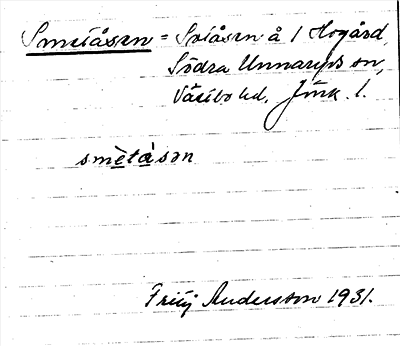 Smetåsen = Sotåsen å 1 Hogård,
Södra Unnaryds sn,
Västbo hd, Jönk. l.
smètàsən
Fritiof Andersson 1931.